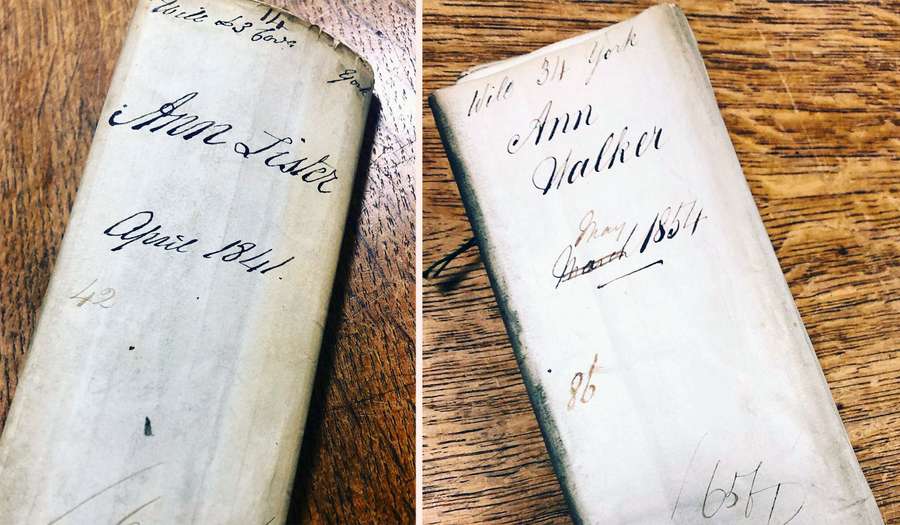 Will
York
Ann Lister
April 1841.
42
Will 34 York
Ann
Walker
May
March 1854
86